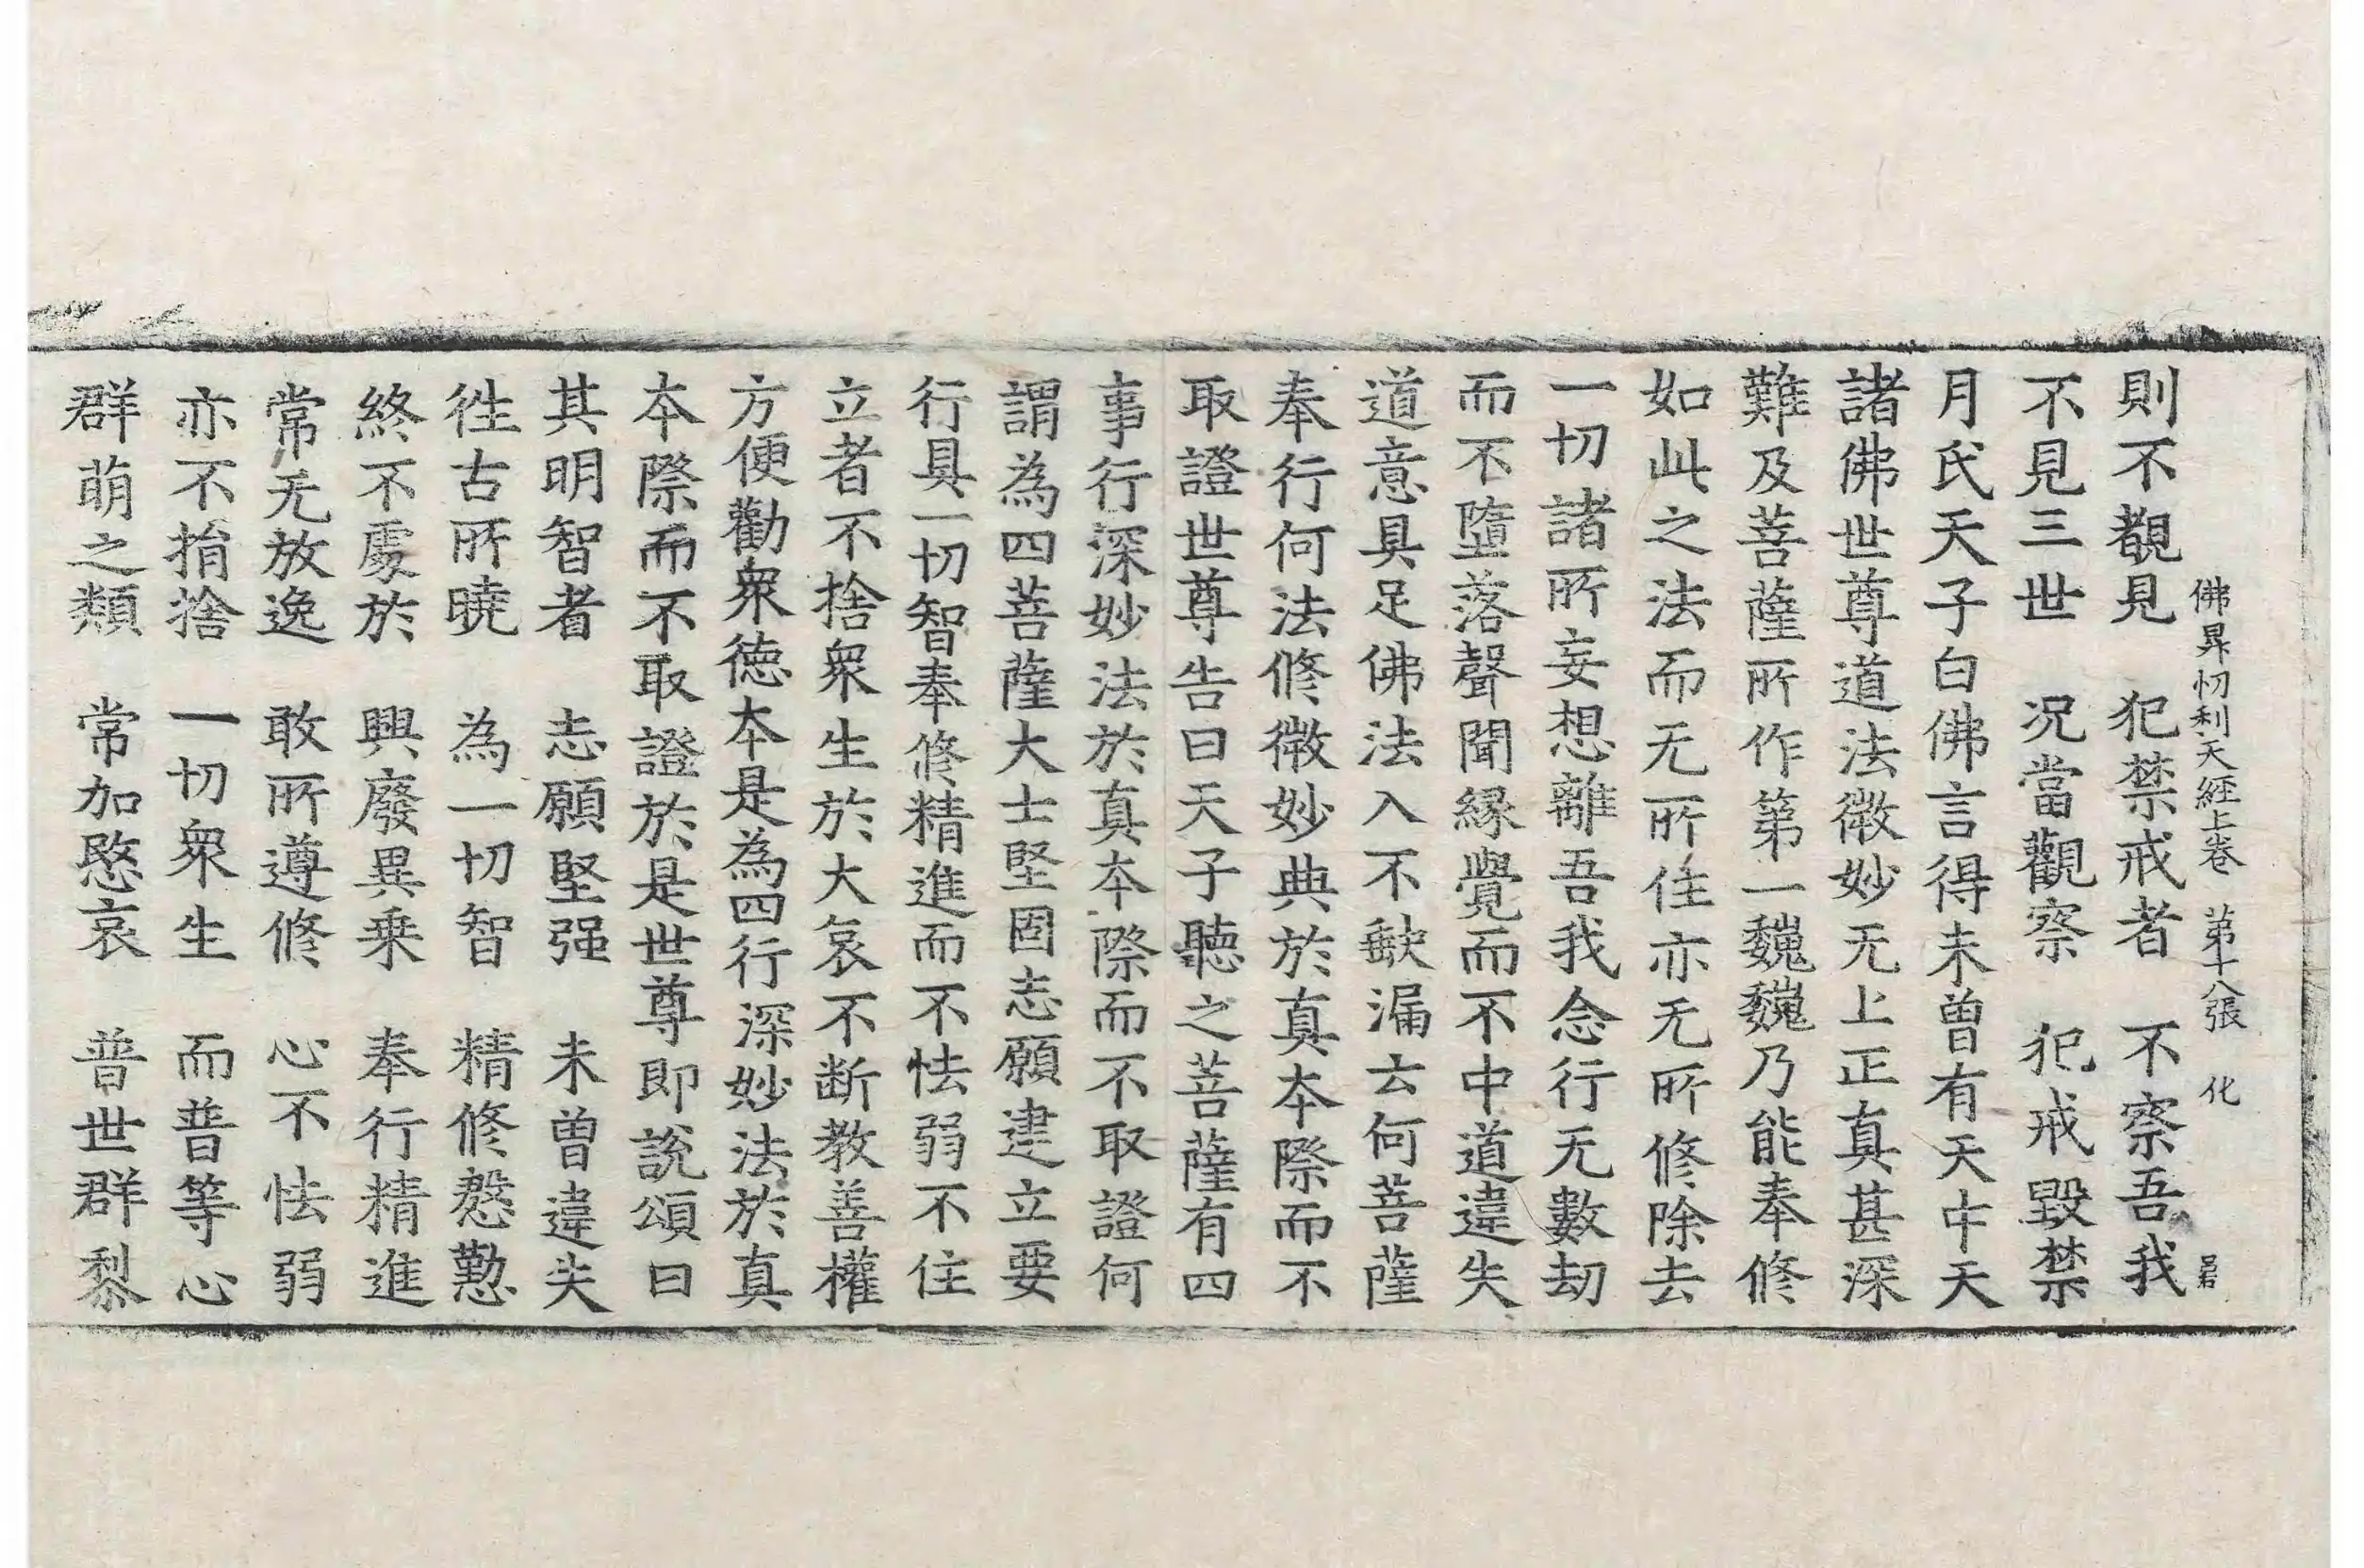 佛昇忉利天經上卷 第十八張 化
則不覩見 犯禁戒者 不察吾我
不見三世 况當觀察 犯戒毀禁
月氏天子白佛言得未曽有天中天
諸佛世尊道法微妙无上正真甚深
難及菩薩所作第一巍巍乃能奉修
如此之法而无所住亦无所修除去
一切諸所妄想離吾我念行无數劫
而不墮落聲聞縁覺而不中道違失
道意具足佛法入不缺漏云何菩薩
奉行何法修微妙典於真本際而不
取證世尊告曰天子聽之菩薩有四
事行深妙法於真本際而不取證何
謂為四菩薩大士堅固志願建立要
行具一切智奉修精進而不怯弱不住
立者不捨衆生於大哀不断教善權
方便勸衆徳本是為四行深妙法於真
本際而不取證於是世尊即說頌曰
其明智者 志願堅强 未曽違失
徃古所曉 為一切智 精修慇懃
終不處於 興廢異乗 奉行精進
常无放逸 敢所遵修 心不怯弱
亦不捐捨 一切衆生 而普等心
群萌之類 常加愍哀 普世群黎